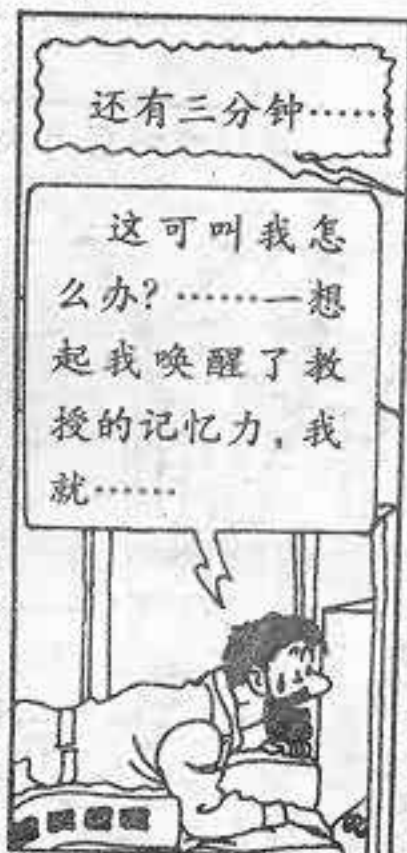 还有三分钟……
这可叫我怎
么办？……一想
起我唤醒了教
授的记忆力，我
就……